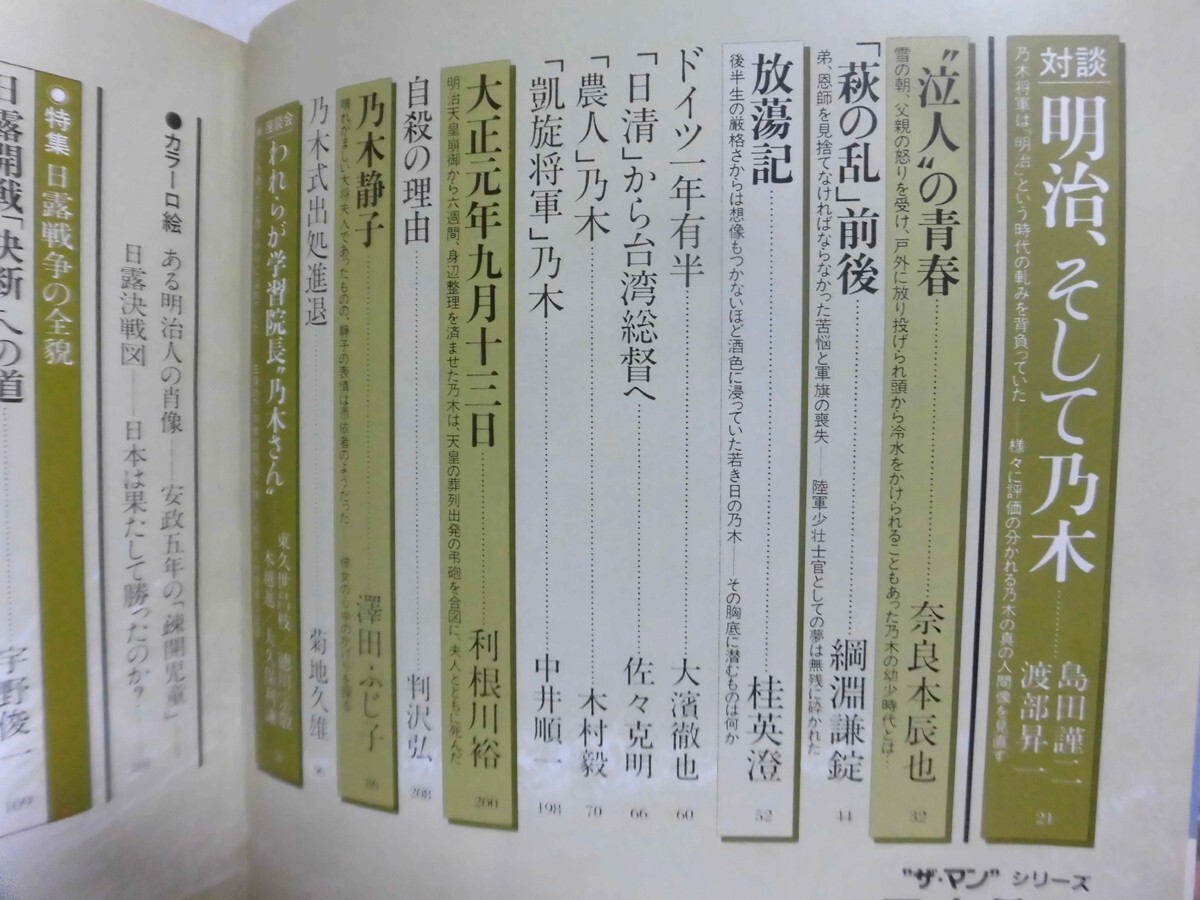 対談 明治、そして乃木
島田謹二
渡部昇一
21
乃木将軍は、「明治」という時代の軋みを背負っていた——様々に評価の分かれる乃木の真の人間像を見直す
“泣人”の青春 奈良本辰也 32
雪の朝、父親の怒りを受け、戸外に放り投げられ頭から冷水をかけられることもあった乃木の幼少時代とは…
「萩の乱」前後 綱淵謙錠 44
弟、恩師を見捨てなければならなかった苦悩と軍旗の喪失——陸軍少壮士官としての夢は無残に砕かれた
放蕩記 桂英澄 52
後半生の厳格さからは想像もつかないほど酒色に浸っていた若き日の乃木——その胸底に潜むものは何か
ドイツ一年有半 大濱徹也 60
「日清」から台湾総督へ 佐々克明 66
「農人」乃木 木村毅 70
「凱旋将軍」乃木 中井順一 198
大正元年九月十三日 利根川裕 200
明治天皇崩御から六週間、身辺整理を済ませた乃木は、天皇の葬列出発の弔砲を合図に、夫人とともに死んだ
自殺の理由 判沢弘 208
乃木静子 澤田ふじ子
晴れがましい大将夫人であったものの、静子の表情は憑依者のようだった
乃木式出処進退 菊地久雄
座談会 われらが学習院長“乃木さん”
●カラー口絵 ある明治人の肖像——安政五年の「疎開児童」——
日露決戦図——日本は果たして勝ったのか?
●特集 日露戦争の全貌
日露開戦「決断」への道 宇野俊一 109
“ザ・マン”シリーズ